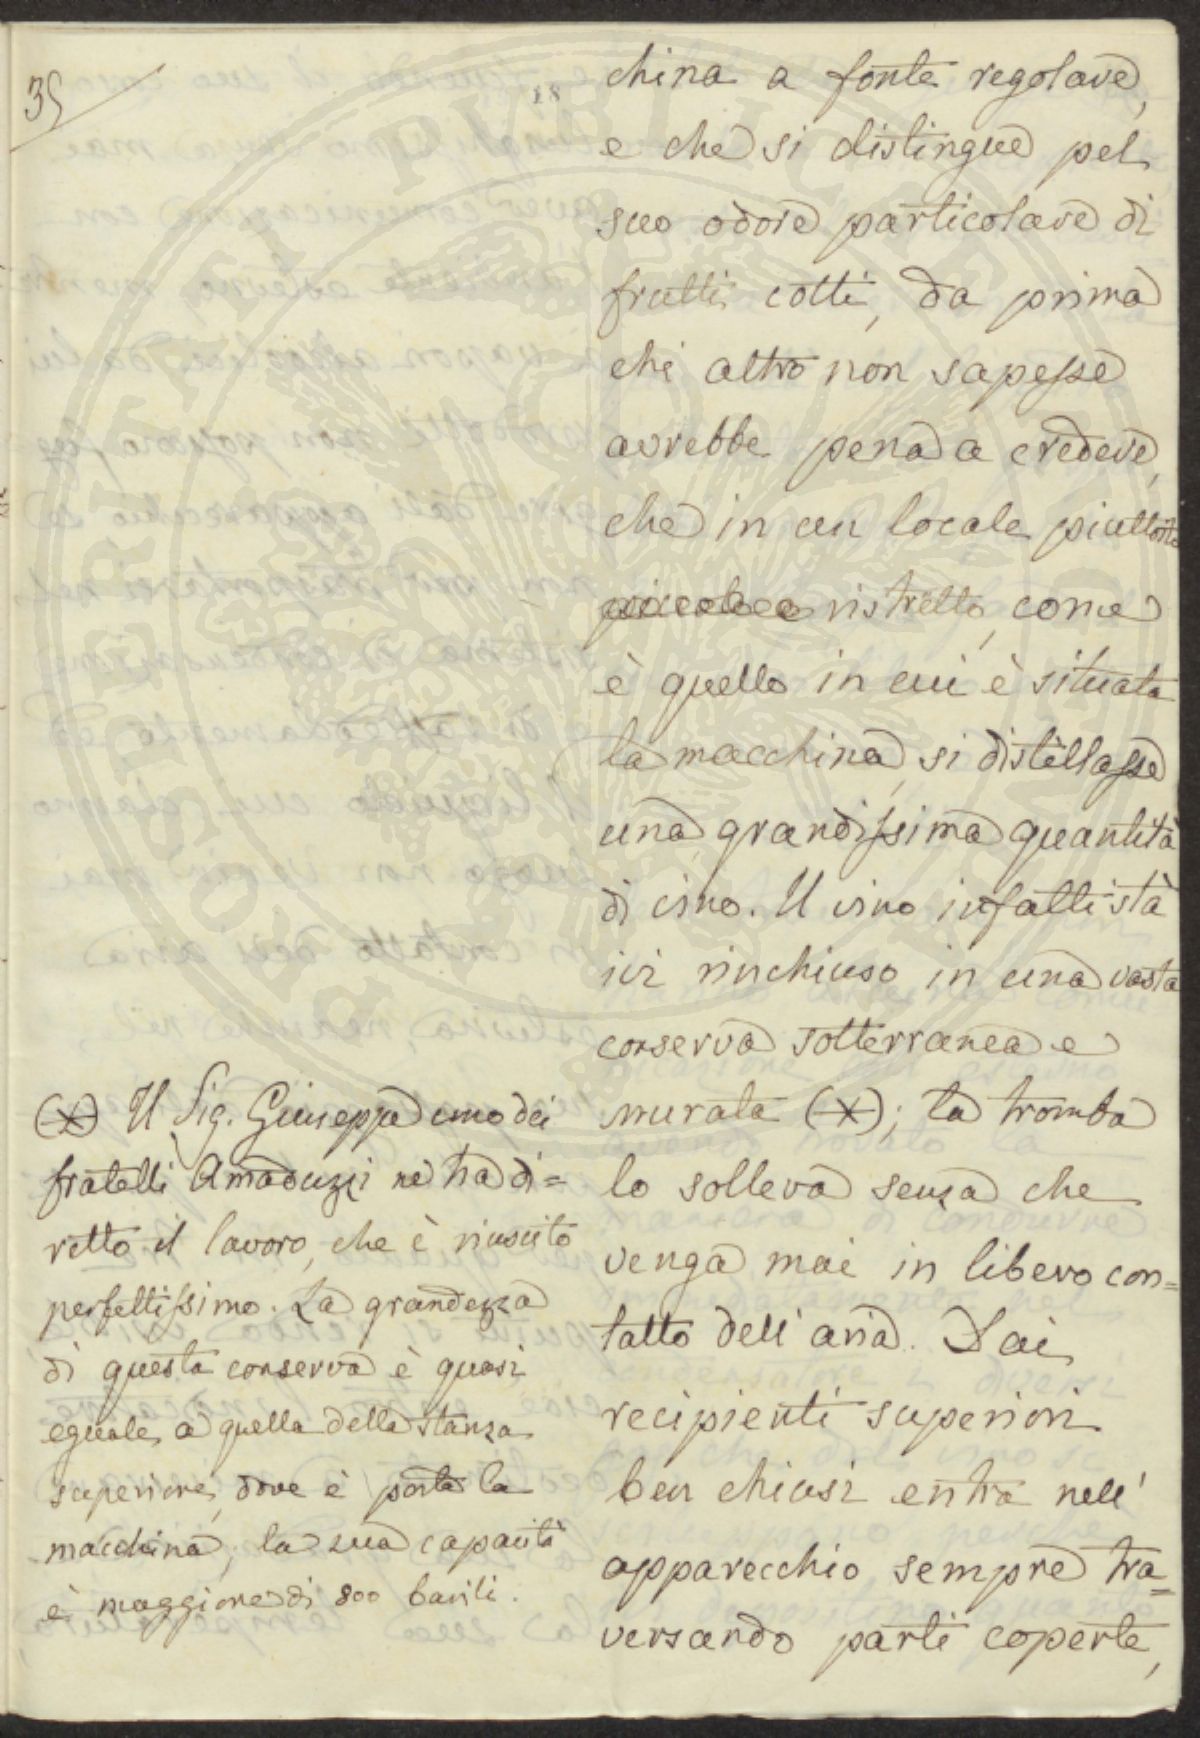 35
18
china a fonte regolare,
e che si distingue pel
suo odore particolare di
frutti cotti, da prima
chi altro non sapesse
avrebbe pena a credere,
che in un locale piuttosto
piccolo ristretto, come
è quello in cui è situata
la macchina, si distillasse
una grandissima quantità
di vino. Il vino infatti stà
ivi rinchiuso in una vasta
conserva sotterranea e
murata (X); la tromba
lo solleva senza che
venga mai in libero con=
tatto dell'aria. Dai
recipienti superiori
ben chiusi entra nell'
apparecchio sempre tra=
versando parti coperte,
(X) Il Sig. Giuseppe uno dei
fratelli Amaduzzi ne ha di=
retto il lavoro, che è riuscito
perfettissimo. La grandezza
di questa conserva è quasi
eguale a quella della stanza
superiore, dove è posta la
macchina; la sua capacità
è maggiore di 800 barili.